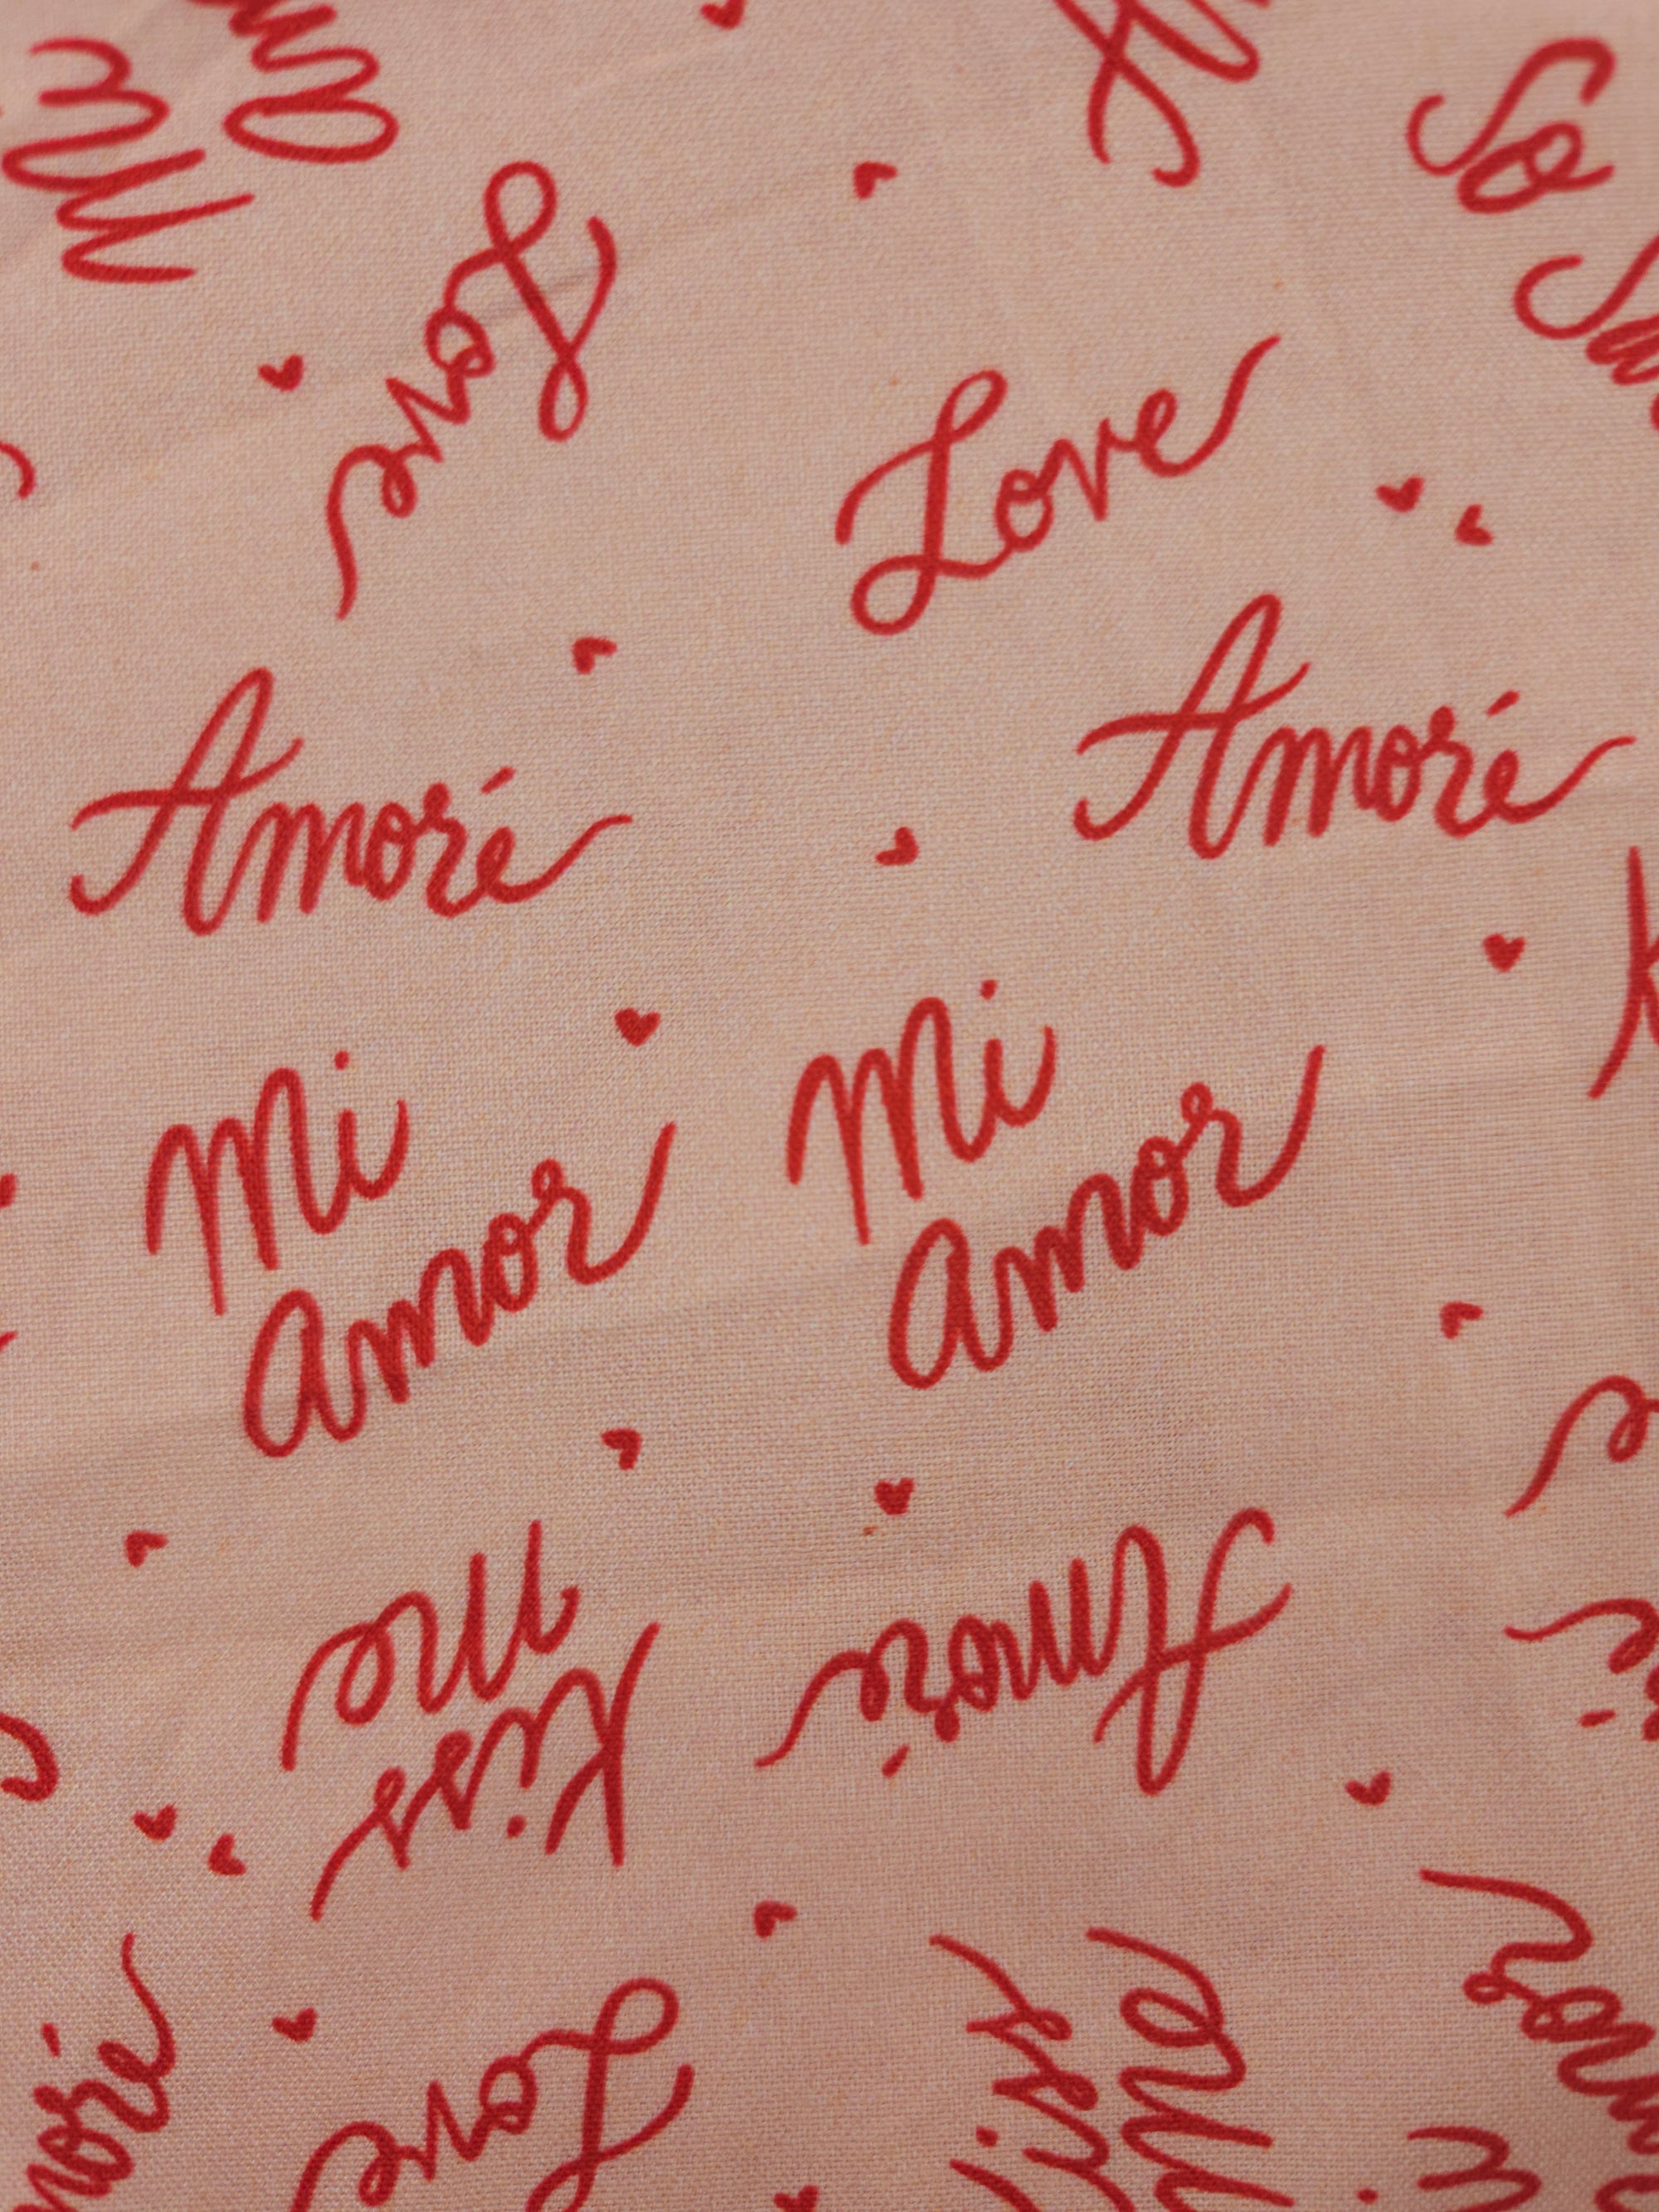 So
Love
Love
Amoré
Amoré
Mi
Amor
Mi
Amor
Kiss
me
Amoré
Love
Kiss
me